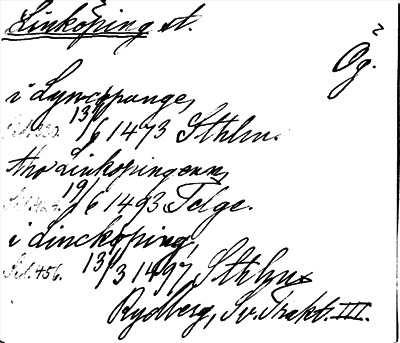 Linköping st.
Ög.
i Lyncopunge,
Sid. 330. 13/6 1473 Sthlm.
tho Linköpingenn,
19/6 1493 Telge.
i Lincköping,
Sid. 456. 13/3 1497, Sthlm
Rydberg, Sv. Trakt. III.